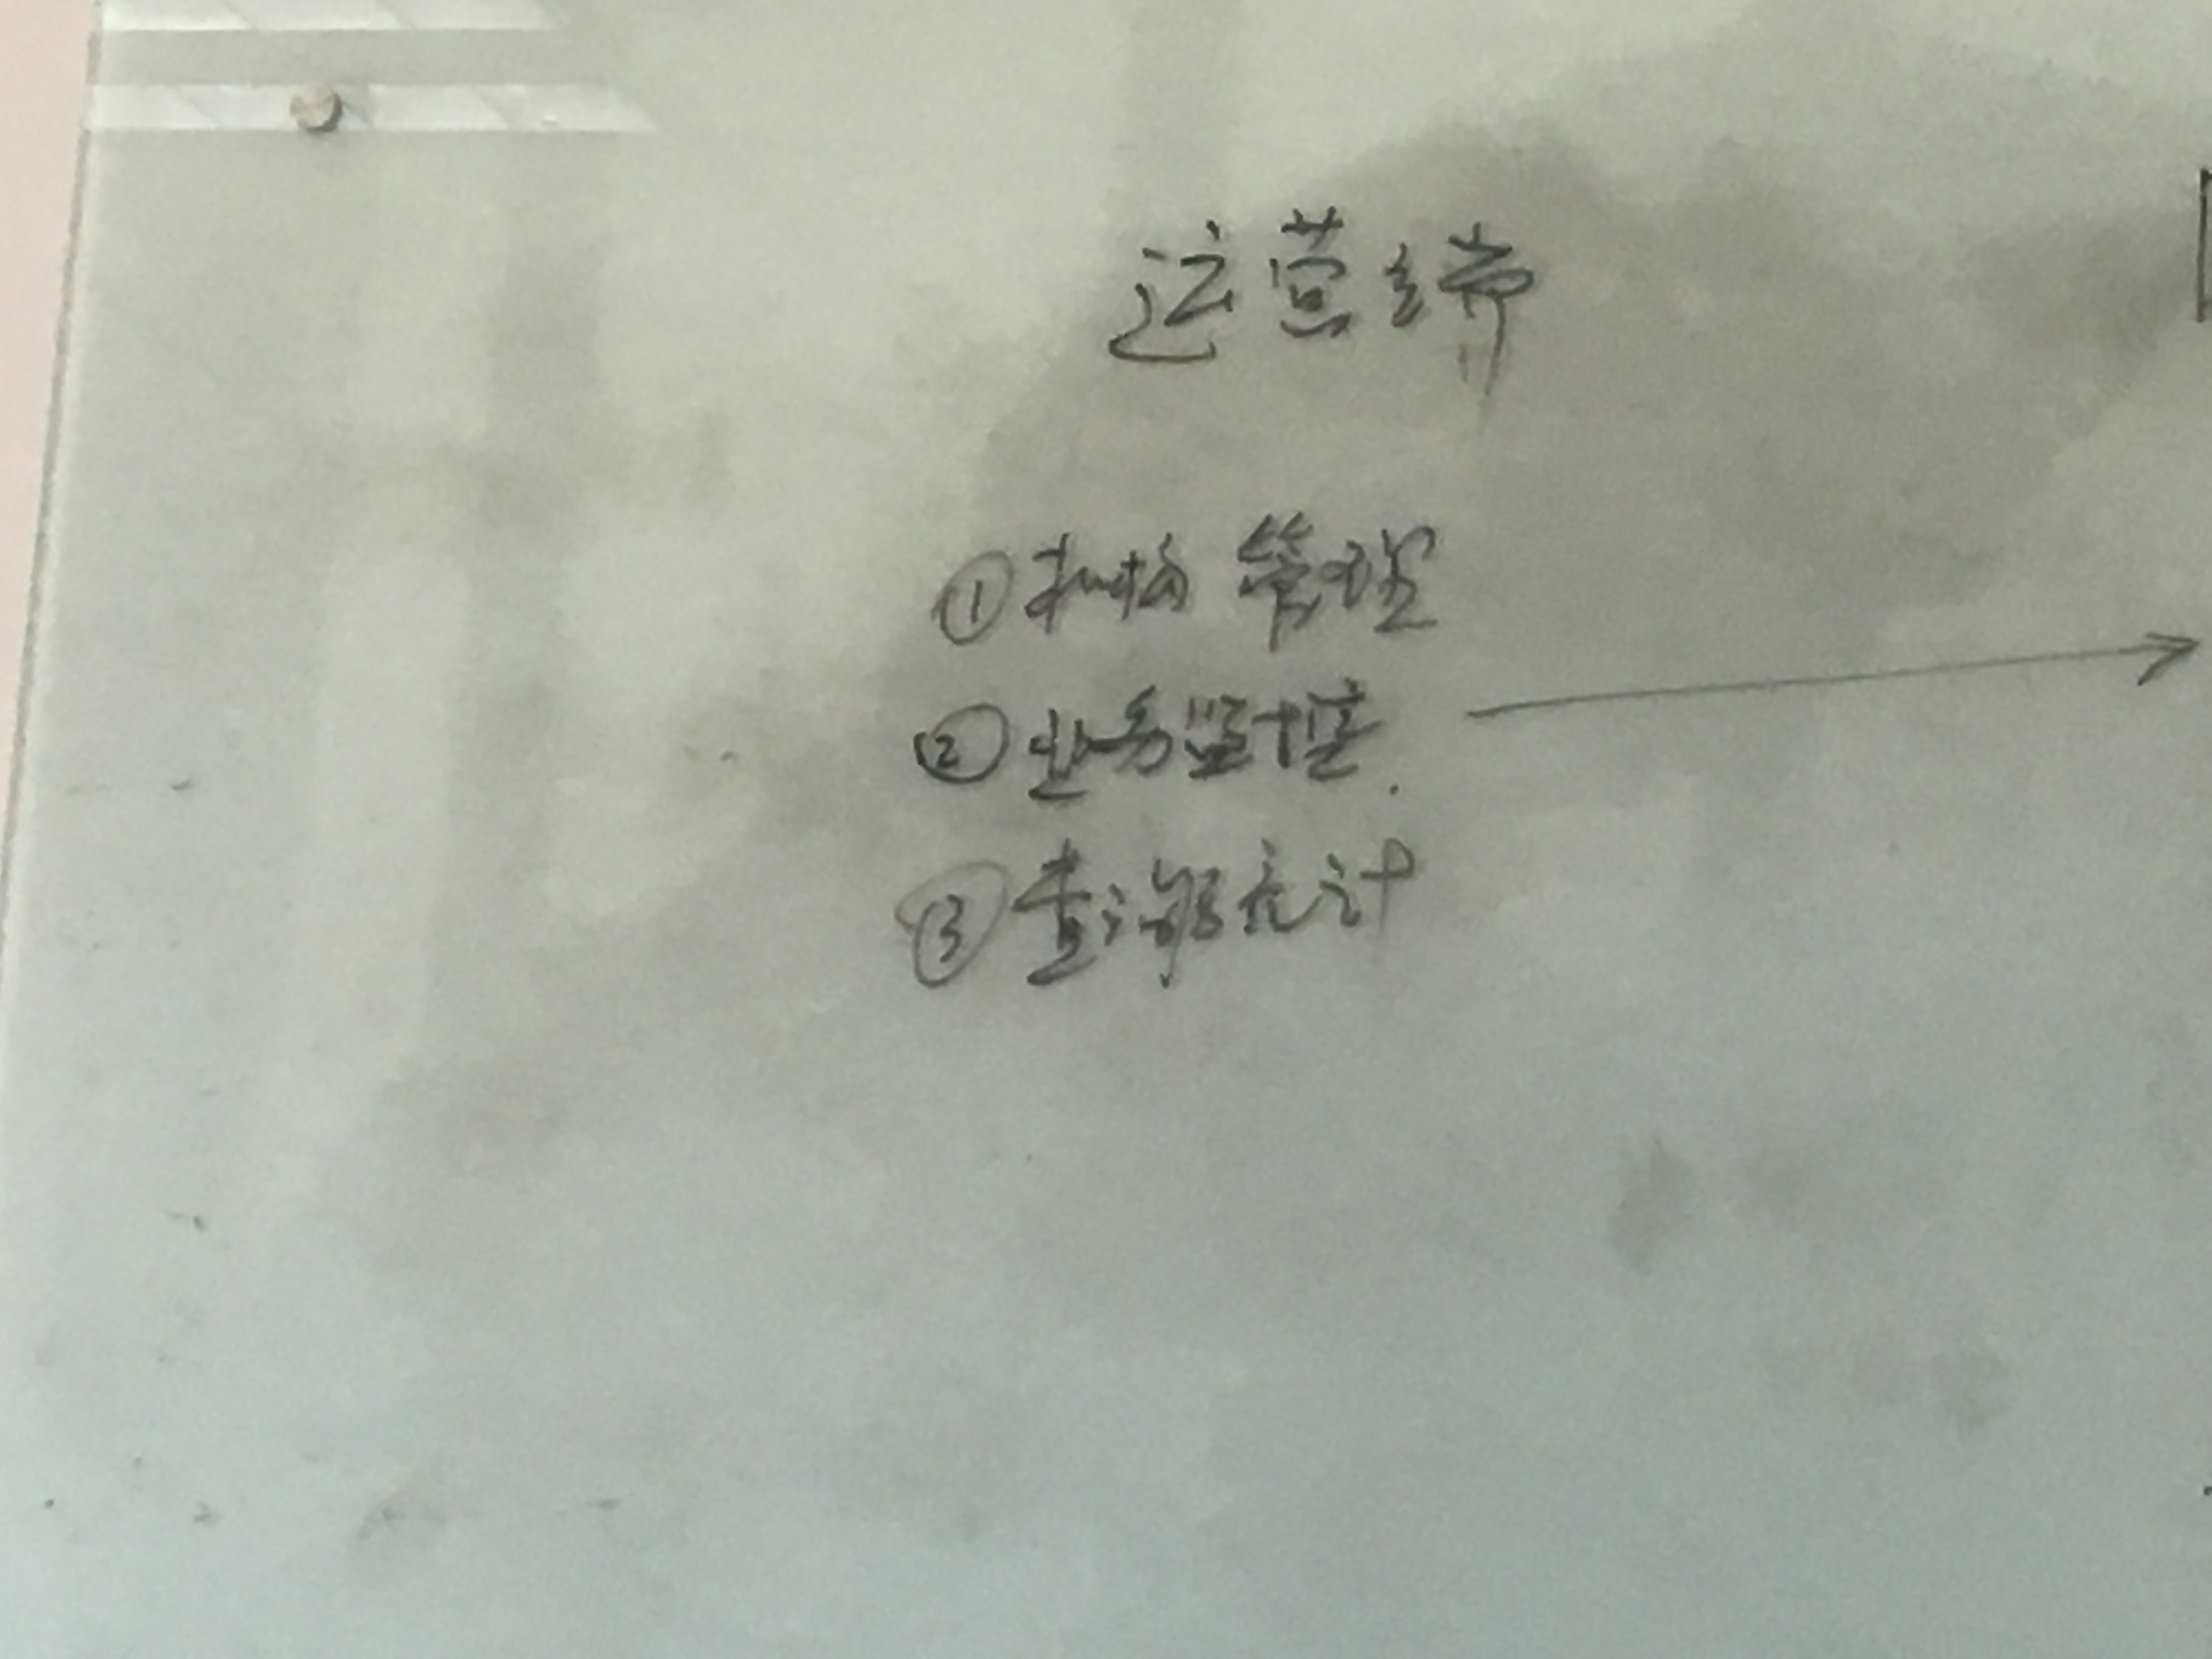 运营端
①机构管理
②业务监控
③查询统计